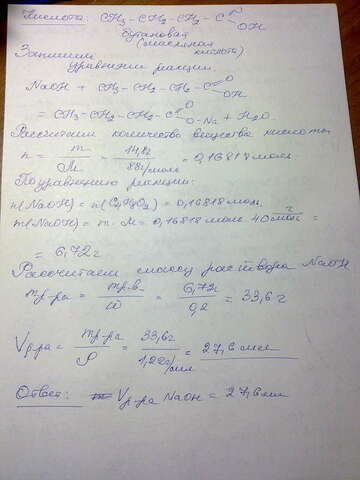 Кислота: CH3 - CH2 - CH2 - C=O OH
бутановая
(масляная
кислота)
Запишем
уравнение реакции.
NaOH + CH3 - CH2 - CH2 - C=O OH
= CH3 - CH2 - CH2 - C=O O-Na + H2O.
Рассчитаем количество вещества кислоты
n = m/M = 14,8г/88г/моль = 0,16818 моль
По уравнению реакции:
n(NaOH) = n(C4H8O2) = 0,16818 моль
m(NaOH) = n · M = 0,16818 моль · 40 г/моль =
= 6,72 г
Рассчитаем массу раствора NaOH
mр-ра = mр.в./ω = 6,72/0,2 = 33,6 г
Vр-ра = mр-ра/ρ = 33,6г/1,22г/мл = 27,6 мл
Ответ: Vр-ра NaOH = 27,6 мл